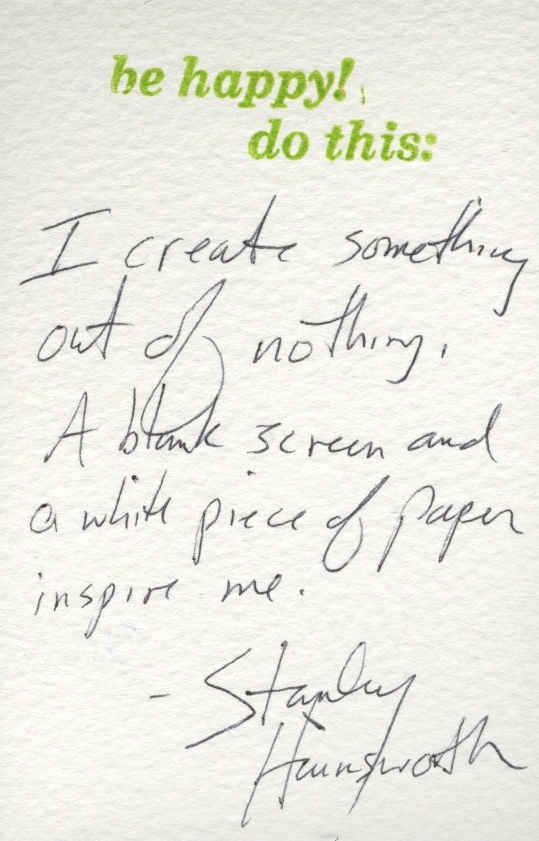 be happy!
do this:
I create something
out of nothing.
A blank screen and
a white piece of paper
inspire me.
- Stanley
Hainsworth